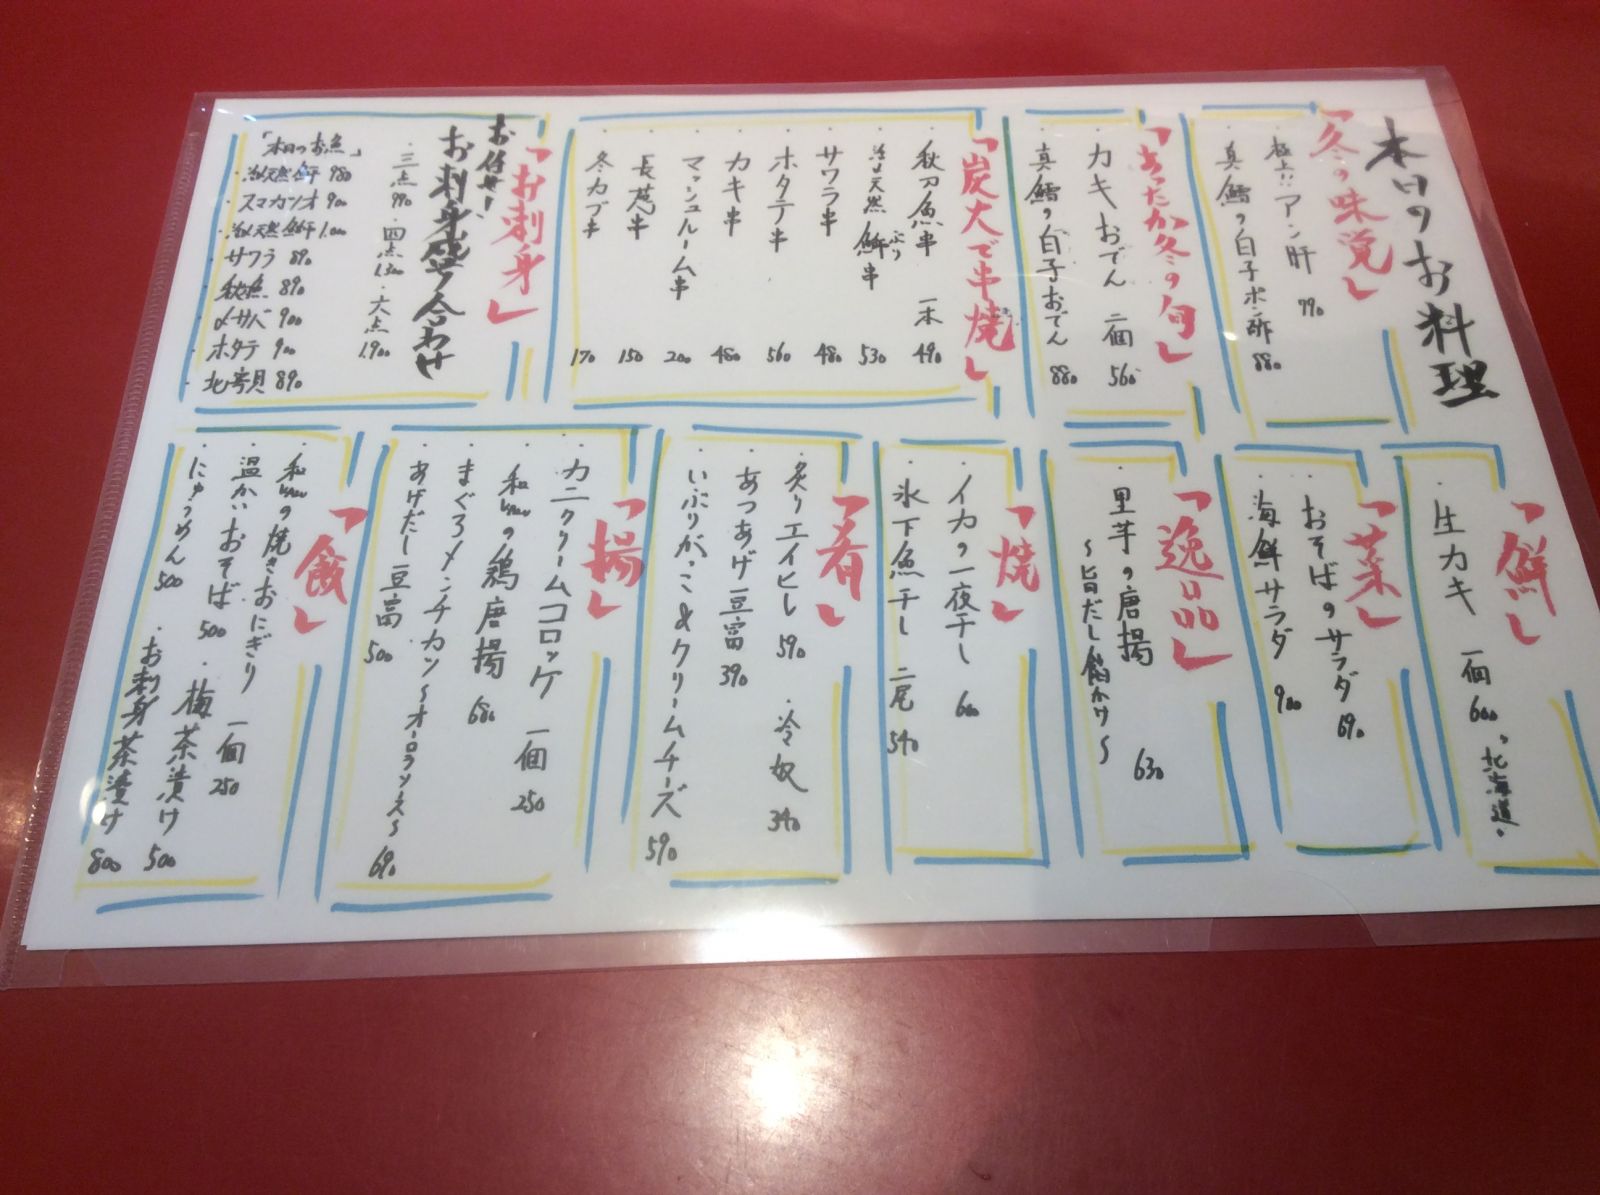 本日のお料理
「冬の味覚」
・極上!!アン肝 790
・真鱈の白子ポン酢 880
「あったか冬の旬」
・カキおでん 二個 560
・真鱈の白子おでん 880
「炭火で串焼」
・秋刀魚串 一本 490
・活〆天然鰤串 530
ぶり
・サワラ串 480
・ホタテ串 560
・カキ串 480
・マッシュルーム串 200
・長葱串 150
・冬カブ串 170
「お刺身」
お任せ!
お刺身盛り合わせ
・三点 990 ・四点 1,300 ・六点 1,900
「本日のお魚」
・スマカツオ 900
・サワラ 890
・〆サバ 900
・ホタテ 900
・北寄貝 890
「鮮」
・生カキ 一個 600 〝北海道〟
「菜」
・おそばのサラダ 690
・海鮮サラダ 900
「逸品」
・里芋の唐揚 630
〜旨だし餡かけ〜
「焼」
・イカの一夜干し 600
・氷下魚干し 二尾 540
「肴」
・炙りエイヒレ 590 ・冷奴 340
・あつあげ豆富 390
・いぶりがっこ&クリームチーズ 590
「揚」
・カニクリームコロッケ 一個 250
の鶏唐揚 680
・まぐろメンチカツ〜オーロラソース〜 690
・あげだし豆富 500
「飯」
の焼きおにぎり 一個 250
・温かいおそば 500 ・梅茶漬け 500
・にゅうめん 500 ・お刺身茶漬け 800